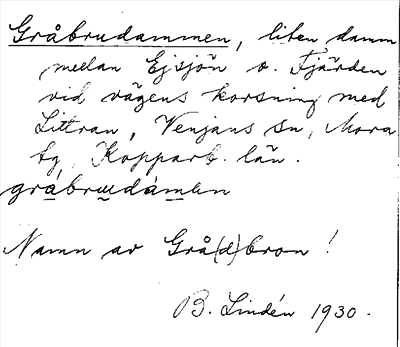 Gråbrudammen, liten damm
mellan Ejsjön o. Fjärden
vid vägens korsning med
Littran, Venjans sn, Mora
tg, Kopparb. län.
gråbrudámen
Namn av Grå(d)bron!
B. Lindén 1930.